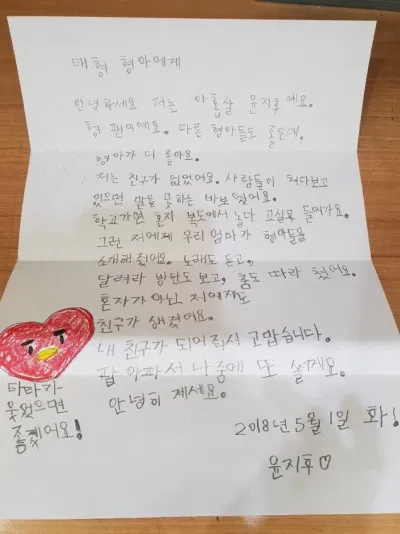 태형 형아에게
안녕하세요 저는 아홉살 윤지후예요.
형 팬이예요. 다른 형아들도 좋은데,
형아가 더 좋아요.
저는 친구가 없었어요. 사람들이 쳐다보고
있으면 말을 못하는 바보 였어요.
학교가면 혼자 복도에서 놀다 교실로 들어가요.
그런 저에게 우리엄마가 형아들을
소개해 줬어요. 노래도 듣고,
달려라 방탄도 보고, 춤도 따라 췄어요.
혼자가 아닌 저에게도
친구가 생겼어요.
내 친구가 되어 줘서 고맙습니다.
팔 아파서 나중에 또 쓸께요.
안녕히 계세요.
2018년 5월 1일 화!
윤지후♡
타타가
웃었으면
좋겠어요!